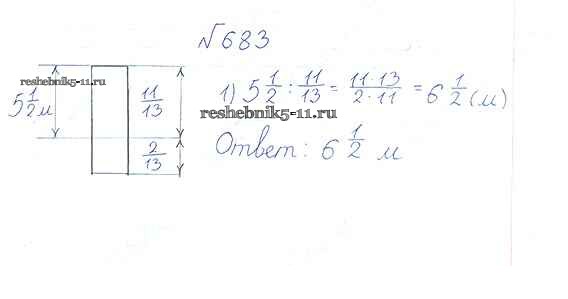 №683
reshebnik5-11.ru
5 1/2 м
11/13
2/13
1) 5 1/2 : 11/13 = 11·13/2·11 = 6 1/2 (м)
reshebnik5-11.ru
Ответ: 6 1/2 м